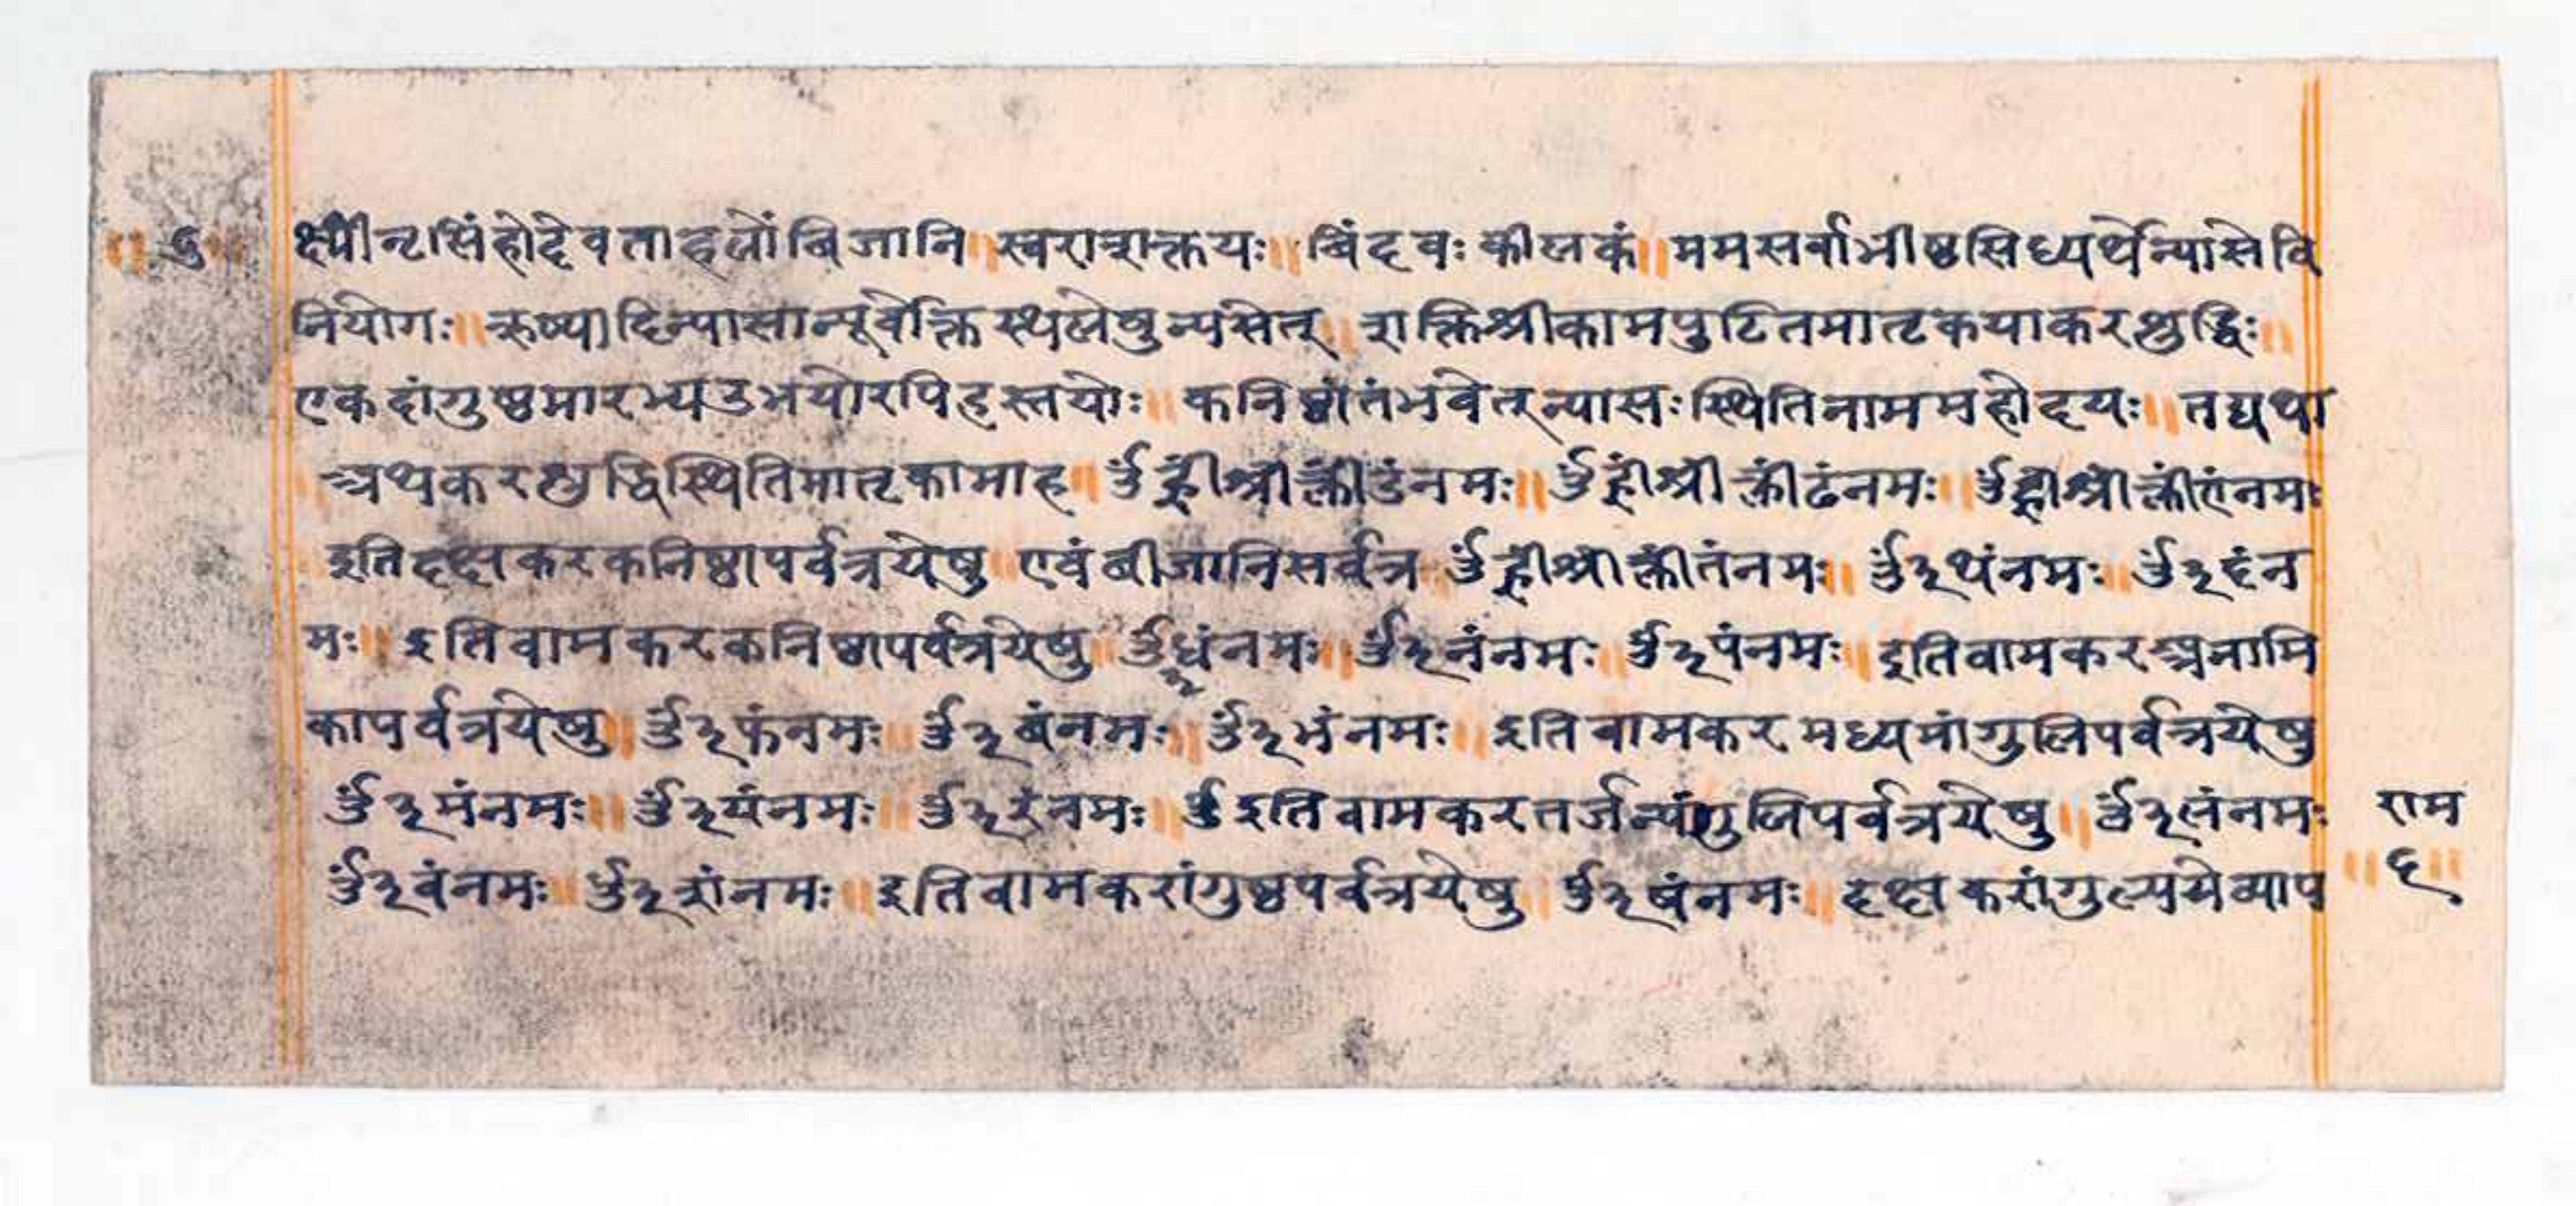 ॥ ६ ॥ क्ष्यौंनृसिंहोदेवताहलोंबिजानि ॥ स्वराशक्तयः ॥ बिंदवः कीलकं ॥ ममसर्वाभीष्ठसिध्यर्थेन्यासेवि
नियोगः ॥ ऋष्यादिन्यासान्पूर्वोक्तिस्थलेषुन्यसेत् ॥ शक्तिश्रीकामपुटितमातृकयाकरशुद्धिः ॥
एकदांगुष्ठमारभ्यउभयोरपिहस्तयोः ॥ कनिष्ठांतंभवेत्न्यासःस्थितिनाममहोदयः ॥ तद्यथा
॥ अथकरशुद्धिस्थितिमातृकामाह ॥ ॐह्रींश्रींक्लींडंनमः ॥ ॐह्रींश्रींक्लींढंनमः ॥ ॐह्रींश्रींक्लींणंनमः
इतिदक्षकरकनिष्ठापर्वत्रयेषु एवंबीजानिसर्वत्र ॐह्रींश्रींक्लींतंनमः ॥ ॐ३थंनमः ॥ ॐ३दंन
मः ॥ इतिवामकरकनिष्ठापर्वत्रयेषु ॥ ॐ३धंनमः ॥ ॐ३नंनमः ॥ ॐ३पंनमः ॥ इतिवामकरअनामि
कापर्वत्रयेषु ॥ ॐ३फंनमः ॥ ॐ३बंनमः ॥ ॐ३भंनमः ॥ इतिवामकरमध्यमांगुलिपर्वत्रयेषु
ॐ३मंनमः ॥ ॐ३यंनमः ॥ ॐ३रंनमः ॥ ॐइतिवामकरतर्जन्यंगुलिपर्वत्रयेषु ॥ ॐ३लंनमः
राम
ॐ३वंनमः ॥ ॐ३शंनमः ॥ इतिवामकरांगुष्ठपर्वत्रयेषु ॥ ॐ३षंनमः ॥ दक्षकरांगुल्यग्रेव्याप
॥ ६ ॥